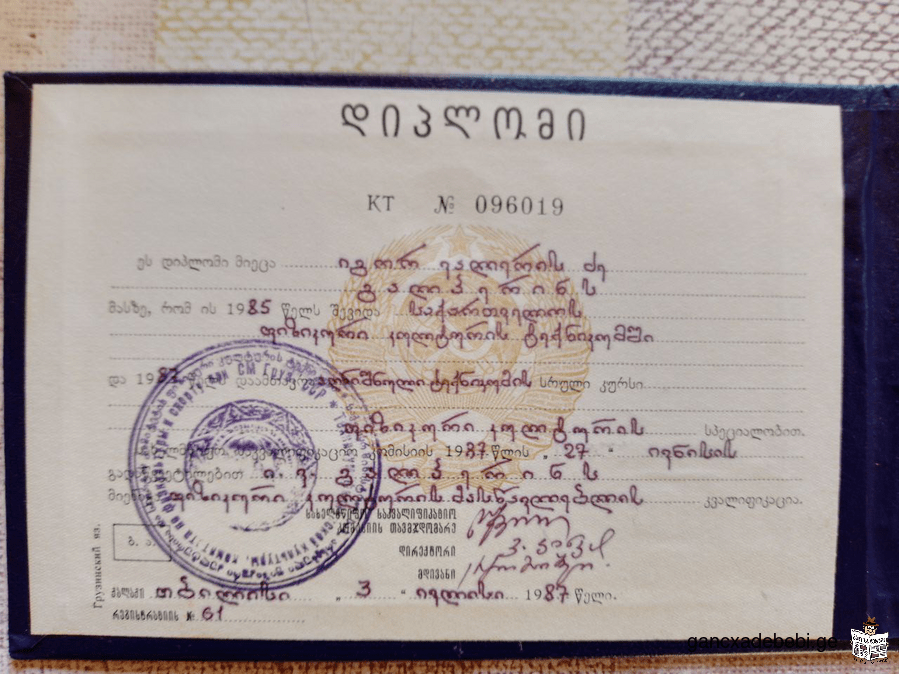 დიპლომი
КТ № 096019
ეს დიპლომი მიეცა იგორ ვალერის ძე
გალპერინს
მასზე, რომ ის 1985 წელს შევიდა საქართველოს
ფიზიკური კულტურის ტექნიკუმში
და 1987 წელს დაამთავრა აღნიშნული ტექნიკუმის სრული კურსი
ფიზიკური კულტურის სპეციალობით.
საკვალიფიკაციო კომისიის 1987 წლის „27“ ივნისის
გადაწყვეტილებით ი. ვ. გალპერინს
ფიზიკური კულტურის მასწავლებლის კვალიფიკაცია.
სახელმწიფო საკვალიფიკაციო
კომისიის თავმჯდომარე
დირექტორი
მდივანი
Грузинский яз.
ქალაქი თბილისი „3“ ივლისი 1987 წელი.
რეგისტრაციის № 61
gancxadebebi.ge